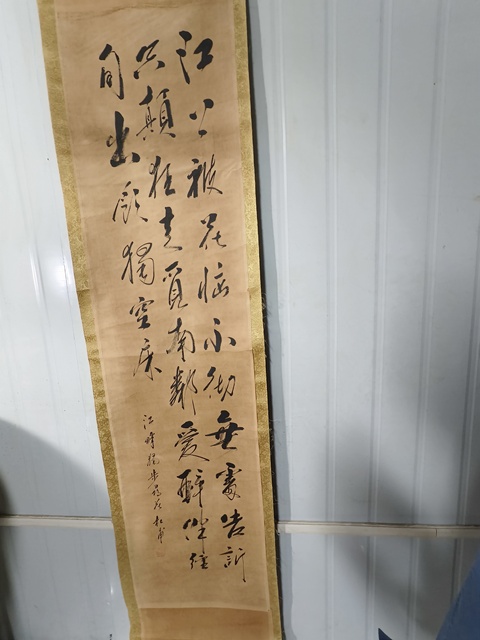 江上被花惱不徹無處告訴
只顛狂走覓南鄰愛醉伴經
旬出飲獨空床
江畔獨步尋花杜甫